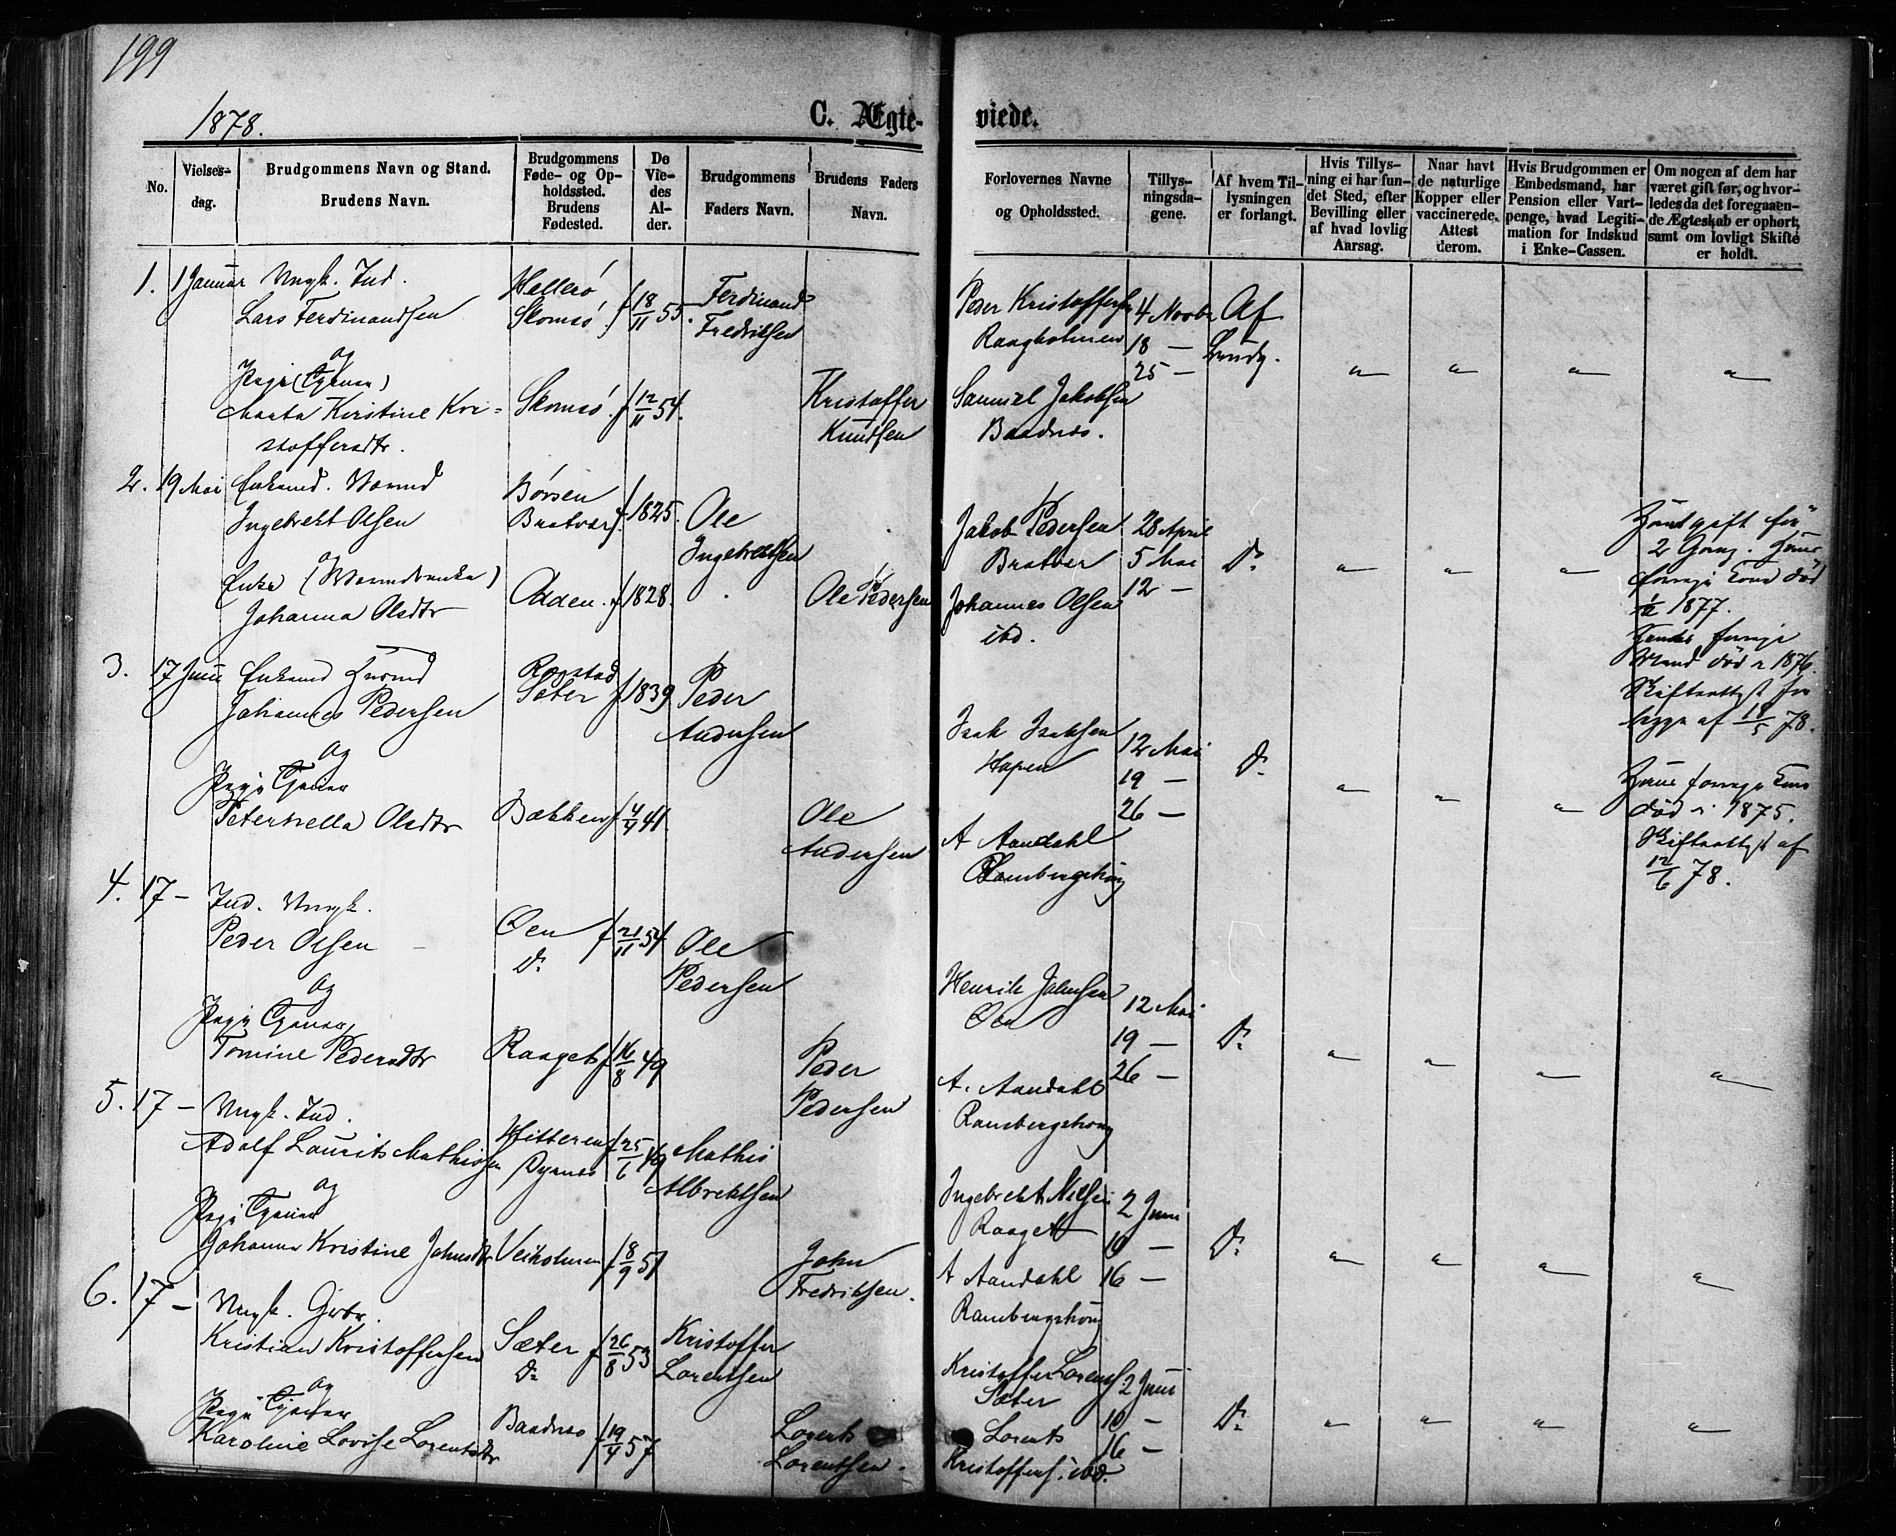 199
1878.
C. Ægte-
viede.
No.
Vielses-
dag.
Brudgommens Navn og Stand.
Brudens Navn.
Brudgommens
Føde- og Op-
holdssted.
Brudens
Fødested.
De
Vie-
des
Al-
der.
Brudgommens
Faders Navn.
Brudens Faders
Navn.
Forlovernes Navne
og Opholdssted.
Tillys-
ningsda-
gene.
Af hvem Til-
lysningen
er forlangt.
Hvis Tillys-
ning ei har fun-
det Sted, efter
Bevilling eller
af hvad lovlig
Aarsag.
Naar havt
de naturlige
Kopper eller
vaccinerede.
Attest
derom.
Hvis Brudgommen er
Embedsmand, har
Pension eller Vart-
penge, hvad Legiti-
mation for Indskud
i Enke-Cassen.
Om nogen af dem har
været gift før, og hvor-
ledes da det foregaaen-
de Ægteskab er ophørt,
samt om lovligt Skifte
er holdt.
1. 1 Januar Ungk. Ind.
Lars Ferdinandsen
og
Pige (Tjener)
Marta Kirstine Kri-
stoffersdtr.
Hellesø
Skomsø
f 18/11 55.
Skomsø f 12/11 54.
Ferdinand
Fredriksen
Kristoffer
Knudsen
Peder Kristoffersen
Raagholmen
Samuel Jakobsen
Baadnes.
4 Novbr
18 —
25 —
Af
" " " "
2. 19 Mai Enkemd.
Ingebrekt Olsen
og
Enke
Johanna Olsdtr
Børsen
Bratvær
f 1825.
Odden f 1828.
Ole
Ingebrektsen
Ole Pedersen
Jakob Pedersen
Bratvær
Johannes Olsen
ibd.
28 April
5 Mai
12 —
Do
" " "
2 Gang.
død
1877.
Mand død i 1876.
af 18/5 78.
3. 17 Juni Enkemd
Johannes Pedersen
og
Pige Tjener
Peternella Olsdtr
Rogstad
Sæter
f 1839
Bækken f 4/4 41.
Peder
Andersen
Ole
Andersen
Isak Isaksen
Hopen
A Aandahl
Ramberghøug
12 Mai
19 —
26 —
Do
" " "
død i 1875.
af
12/6 78.
4. 17 — Ind. Ungk.
Peder Olsen
og
Pige Tjener
Tomine Pedersdtr
Øen
Do
f 21/11 54
Raaget f 16/8 49
Ole
Pedersen
Peder
Pedersen
Henrik Johnsen
Øen
A. Aandahl
Ramberghøug
12 Mai
19 —
26 —
Do
" " " "
5. 17 — Ungk. Ind.
Adolf Laurits Mathisen
og
Pige Tjener
Johanna Kristine Johnsdtr
Hitteren
Dyrnes
f 25/6 49
Veiholmen f 8/9 51
Mathis
Albrektsen
John
Fredriksen.
Ingebrekt Nilsen
Raaget
A Aandahl
Ramberghøug
2 Juni
10 —
16 —
Do
" " " "
6. 17 — Ungk. Gbr.
Kristian Kristoffersen
og
Pige Tjener
Karoline Lovise Lorentsdtr
Sæter
Do
f 26/8 53
Baadnes f 19/4 57
Kristoffer
Lorentsen
Lorents
Lorentsen.
Kristoffer Lorents.
Sæter
Lorents
Kristoffers. ibd.
2 Juni
10 —
16 —
Do
" " " "